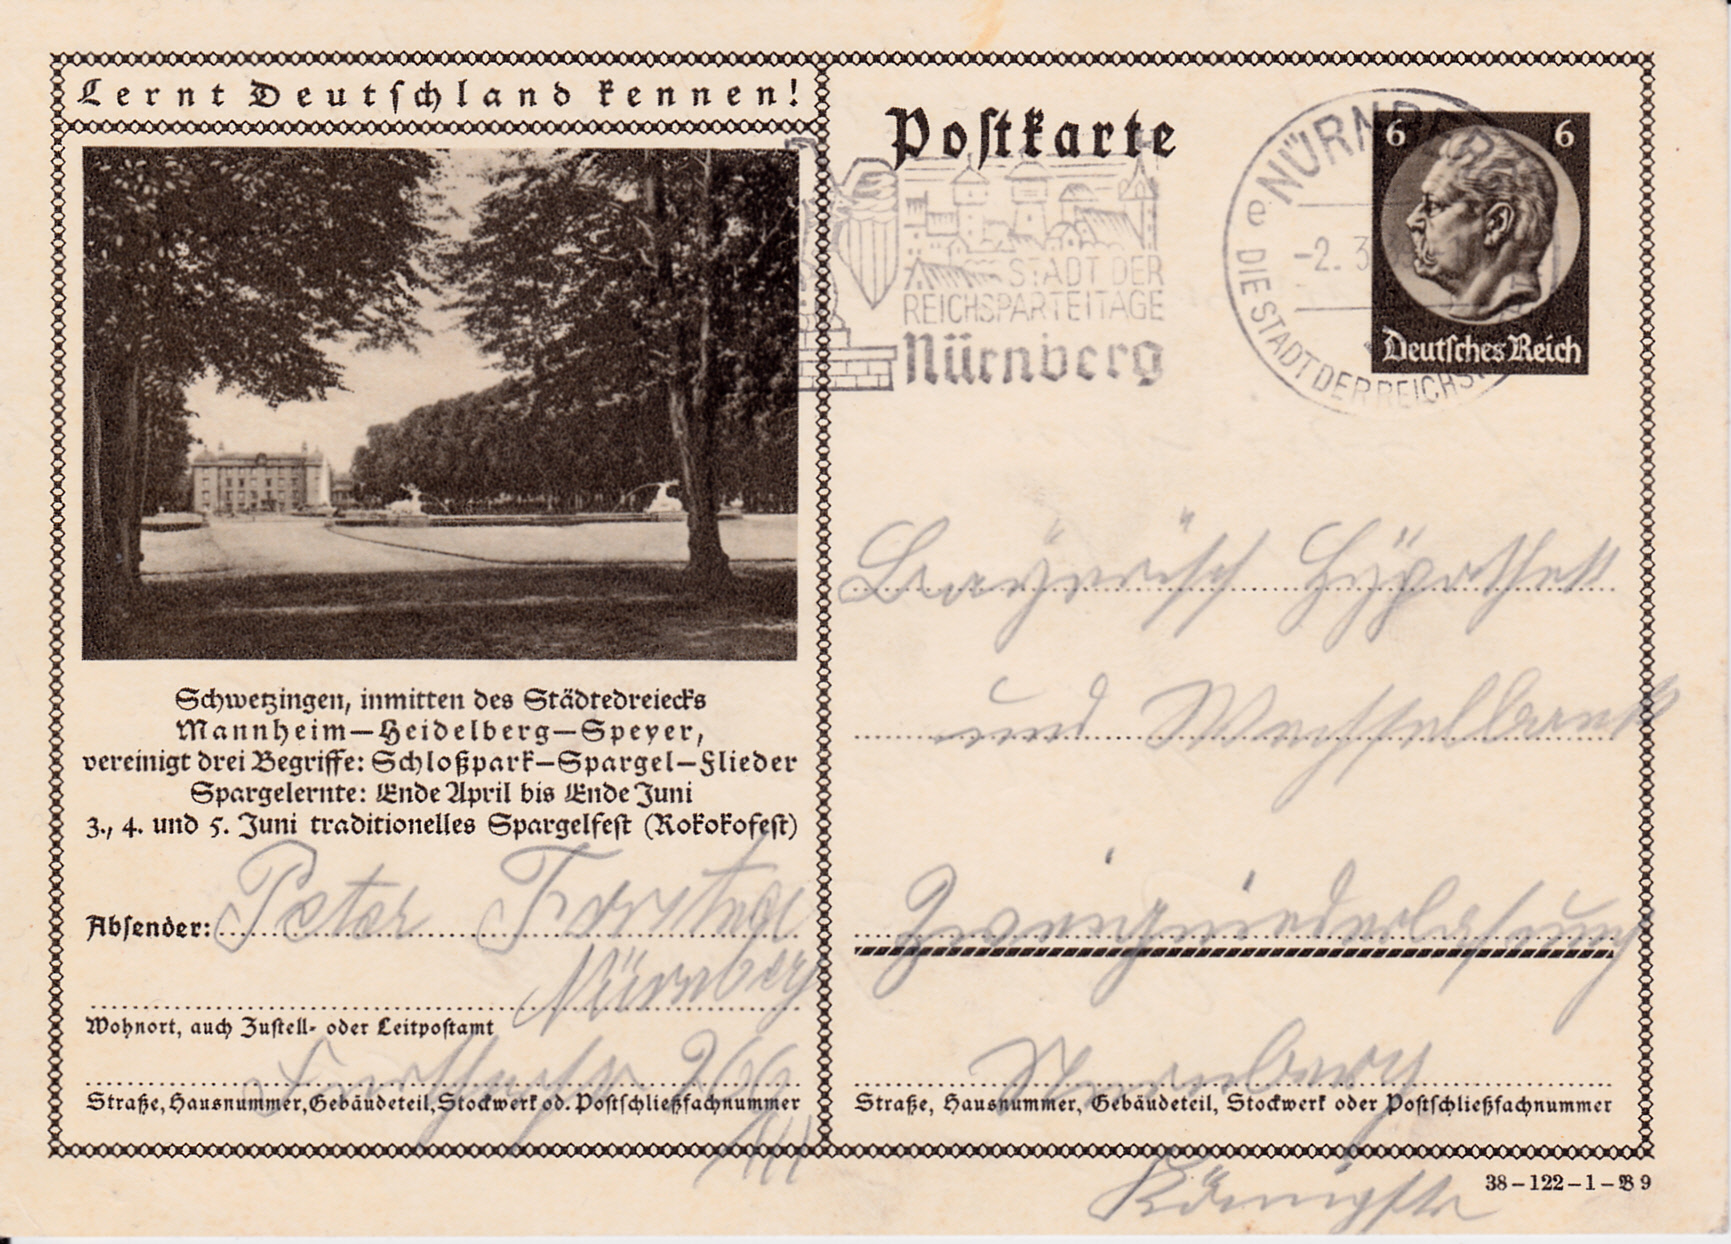 Lernt Deutschland kennen!
Schwetzingen, inmitten des Städtedreiecks
Mannheim–Heidelberg–Speyer,
vereinigt drei Begriffe: Schloßpark–Spargel–Flieder
Spargelernte: Ende April bis Ende Juni
3., 4. und 5. Juni traditionelles Spargelfest (Rokokofest)
Absender: Peter Forster
Nürnberg
Wohnort, auch Zustell- oder Leitpostamt
266
Straße, Hausnummer, Gebäudeteil, Stockwerk od. Postschließfachnummer
III
Postkarte
STADT DER
REICHSPARTEITAGE
Nürnberg
NÜRNBERG
e
-2. 3
DIE STADT DER REICHS
6 6
Deutsches Reich
Bayerisch Hypothek
und Wechselbank
Zweigniederlassung
Nürnberg
Straße, Hausnummer, Gebäudeteil, Stockwerk oder Postschließfachnummer
Königstr
38–122–1–B 9